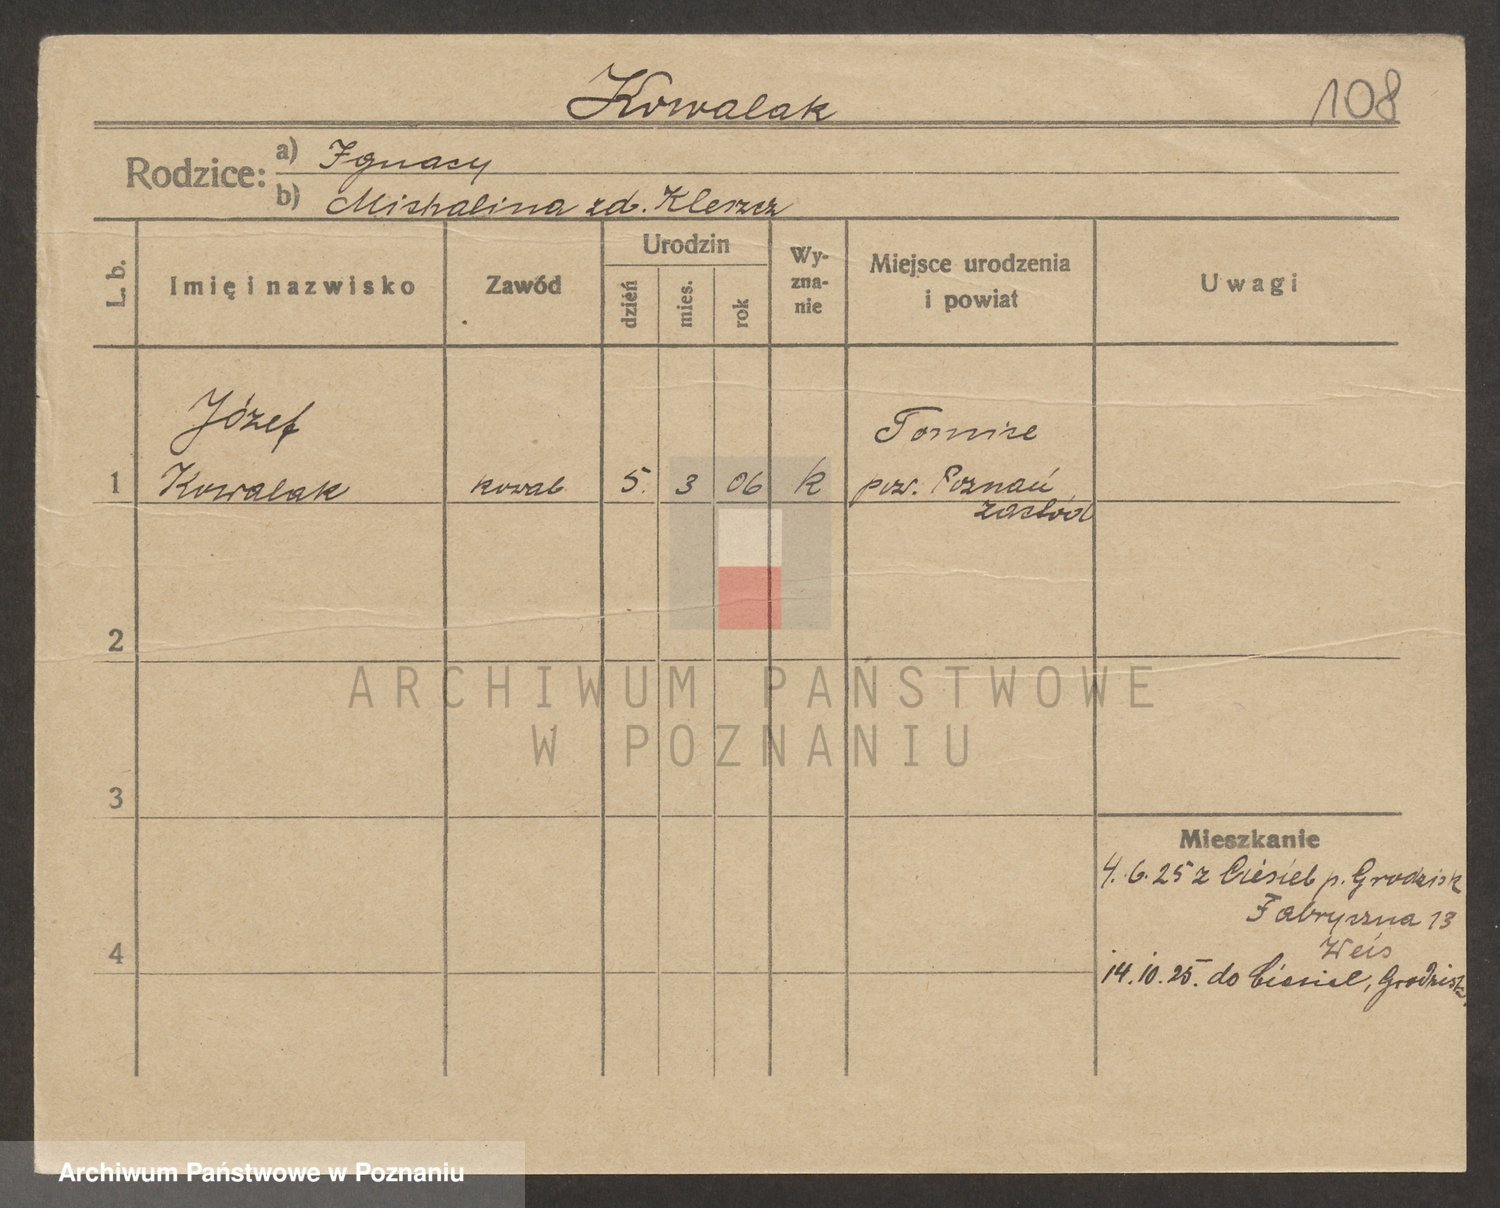 Kowalak
108
Rodzice:
a) Ignacy
b) Michalina zd. Kleszcz
L. b.
Imię i nazwisko
Zawód
Urodzin
dzień
mies.
rok
Wy-
zna-
nie
Miejsce urodzenia
i powiat
Uwagi
Józef
1 Kowalak
kowal
5.
3
06
k
Tomice
pow. Poznań
zachód
2
3
4
ARCHIWUM PAŃSTWOWE
W POZNANIU
Mieszkanie
4.6.25 z p. Grodzisk
Fabryczna 13
Weis
14.10.25. do Grodzisk
Archiwum Państwowe w Poznaniu